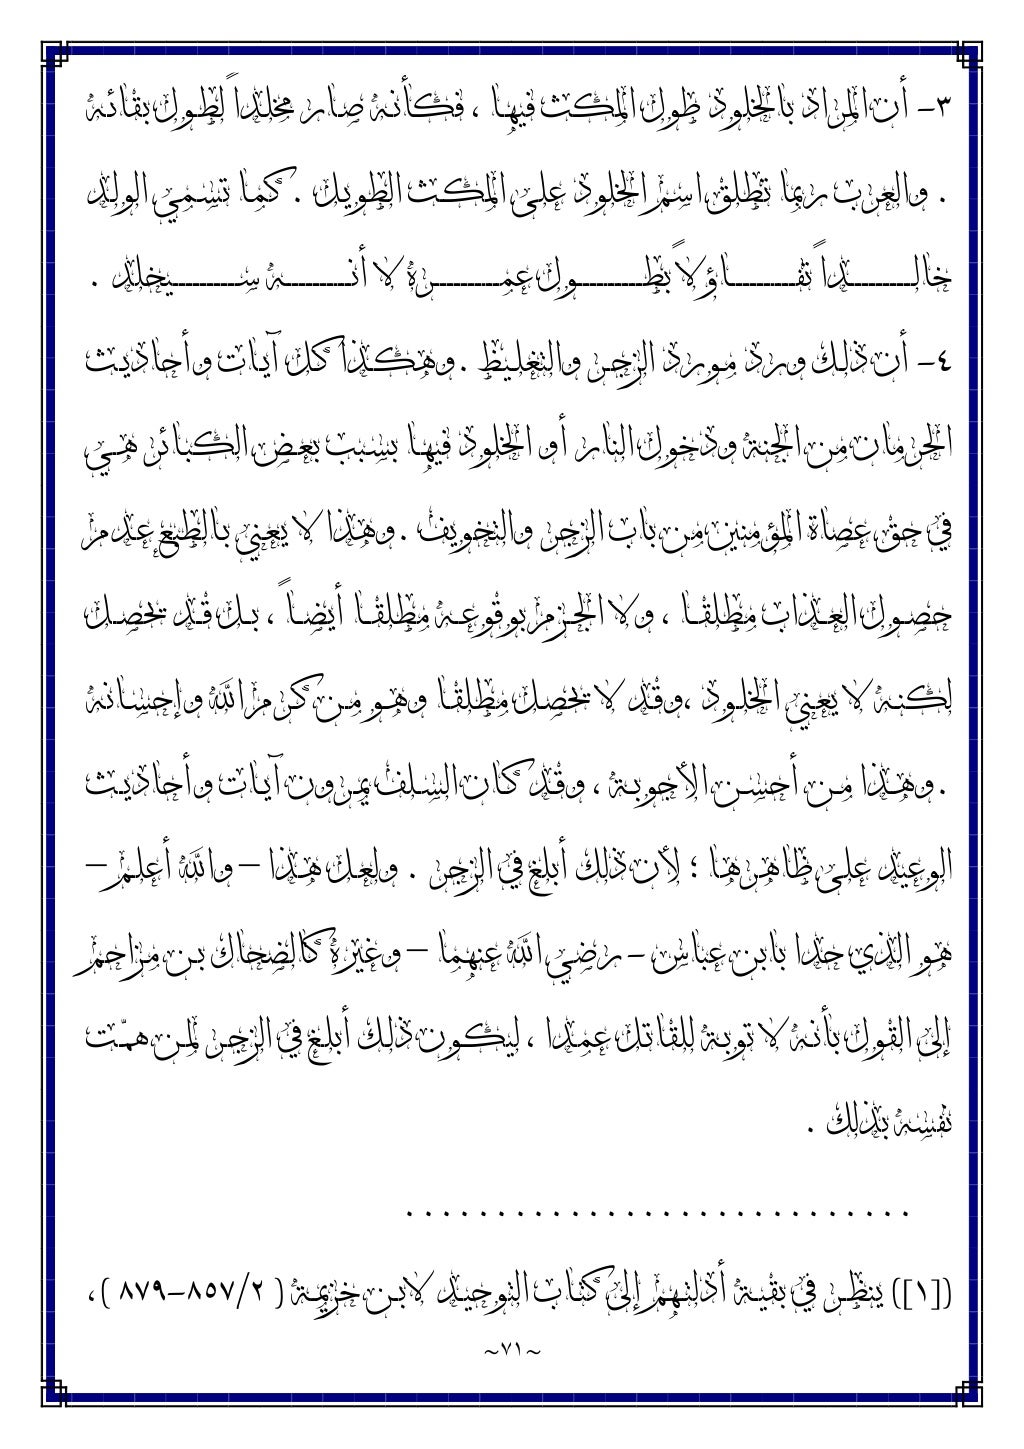 ٣- أن المراد بالخلود طول المكث فيها ، فكأنه صار مخلداً لطول بقائه
. والعرب ربما تطلق اسم الخلود على المكث الطويل . كما تسمي الولد
خالداً تفاؤلاً بطول عمره لا أنه سيخلد .
٤- أن ذلك ورد مورد الزجر والتغليظ .وهكذا كل آيات وأحاديث
الحرمان من الجنة ودخول النار أو الخلود فيها بسبب بعض الكبائر هي
في حق عصاة المؤمنين من باب الزجر والتخويف .وهذا لا يعني بالطبع عدم
حصول العذاب مطلقا ، ولا الجزم بوقوعه مطلقا أيضاً ، بل قد تحصل
لكنه لا يعني الخلود ،وقد لا تحصل مطلقا وهو من كرم الله وإحسانه
.وهذا من أحسن الأجوبة ، وقد كان السلف يمرون آيات وأحاديث
الوعيد على ظاهرها ؛ لأن ذلك أبلغ في الزجر . ولعل هذا – والله أعلم –
هو الذي حدا بابن عباس - رضي الله عنهما – وغيره كالضحاك بن مزاحم
إلى القول بأنه لا توبة للقاتل عمدا ، ليكون ذلك أبلغ في الزجر لمن همّت
نفسه بذلك .
. . . . . . . . . . . . . . . . . . . . . . . . . . . .
([١]) ينظر في بقية أدلتهم إلى كتاب التوحيد لابن خزيمة ( ٢/٨٥٧-٨٧٩ )،
~٧١~